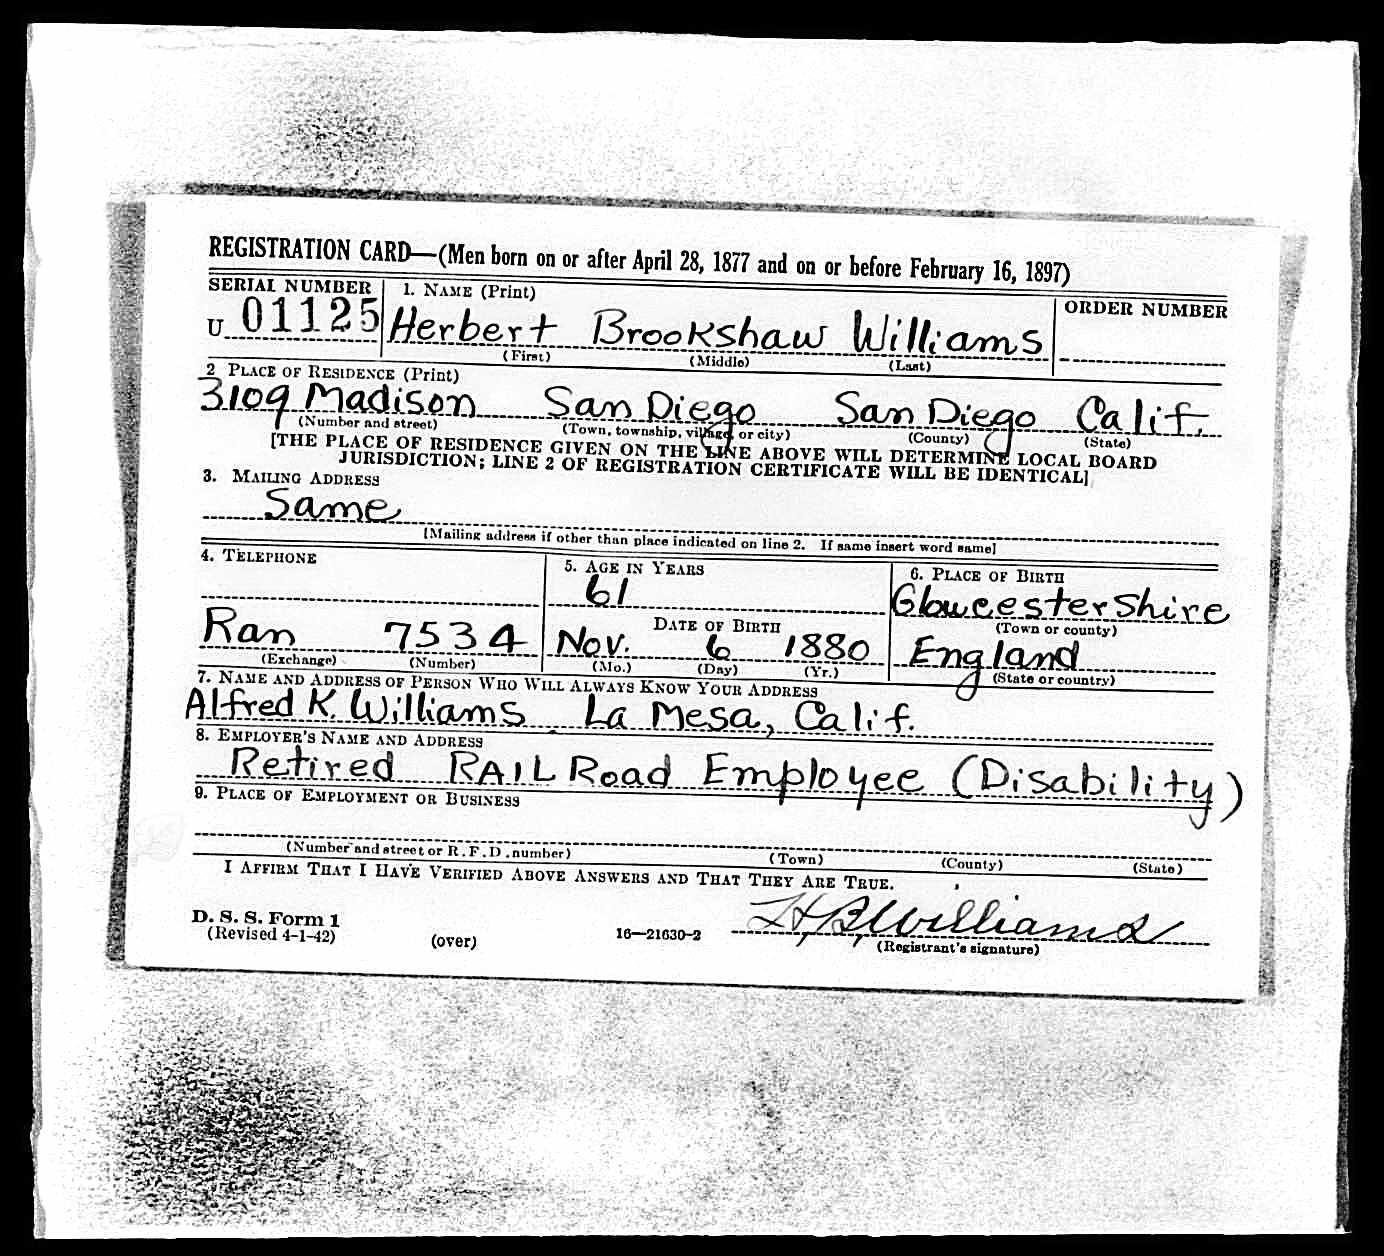 REGISTRATION CARD—(Men born on or after April 28, 1877 and on or before February 16, 1897)
SERIAL NUMBER
1. NAME (Print)
ORDER NUMBER
U 01125
Herbert Brookshaw Williams
(First) (Middle) (Last)
2 PLACE OF RESIDENCE (Print)
3109 Madison San Diego San Diego Calif.
(Number and street) (Town, township, village, or city) (County) (State)
[THE PLACE OF RESIDENCE GIVEN ON THE LINE ABOVE WILL DETERMINE LOCAL BOARD
JURISDICTION; LINE 2 OF REGISTRATION CERTIFICATE WILL BE IDENTICAL]
3. MAILING ADDRESS
Same
[Mailing address if other than place indicated on line 2. If same insert word same]
4. TELEPHONE
5. AGE IN YEARS
6. PLACE OF BIRTH
61
Gloucestershire
(Town or county)
DATE OF BIRTH
Ran 7534
Nov. 6 1880
England
(Exchange) (Number)
(Mo.) (Day) (Yr.)
(State or country)
7. NAME AND ADDRESS OF PERSON WHO WILL ALWAYS KNOW YOUR ADDRESS
Alfred K. Williams La Mesa, Calif.
8. EMPLOYER'S NAME AND ADDRESS
Retired RAILRoad Employee (Disability)
9. PLACE OF EMPLOYMENT OR BUSINESS
(Number and street or R.F.D. number) (Town) (County) (State)
I AFFIRM THAT I HAVE VERIFIED ABOVE ANSWERS AND THAT THEY ARE TRUE.
H. B. Williams
D. S. S. Form 1
(Revised 4-1-42) (over) 16—21630-2 (Registrant's signature)